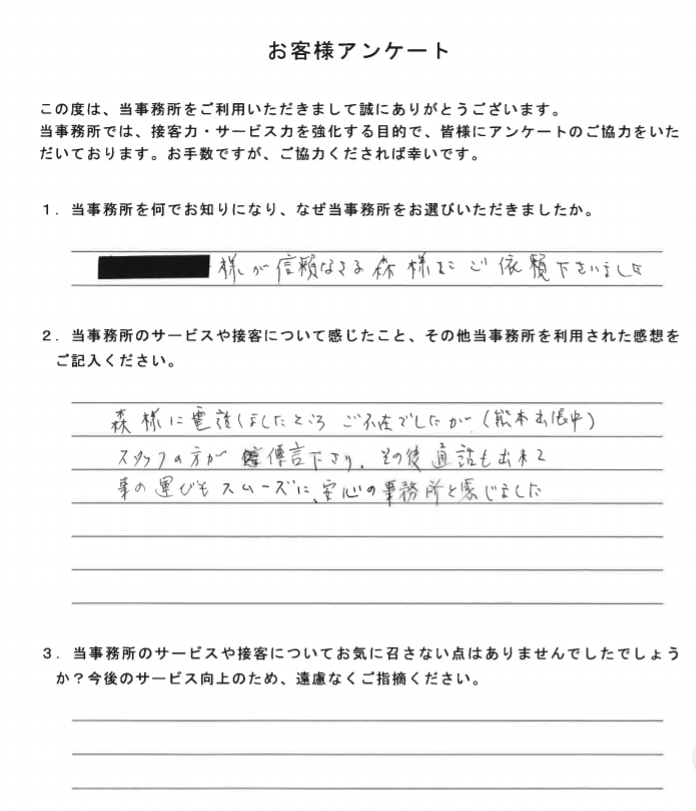 お客様アンケート
この度は、当事務所をご利用いただきまして誠にありがとうございます。
当事務所では、接客力・サービス力を強化する目的で、皆様にアンケートのご協力をいた
だいております。お手数ですが、ご協力くだされば幸いです。
1．当事務所を何でお知りになり、なぜ当事務所をお選びいただきましたか。
様が信頼なさる森様をご依頼下さいました
2．当事務所のサービスや接客について感じたこと、その他当事務所を利用された感想を
ご記入ください。
森様に電話しましたところご不在でしたが（熊本出張中）
スタッフの方が傳言下さり、その後通話も出来て
事の運びもスムーズに、安心の事務所と感じました
3．当事務所のサービスや接客についてお気に召さない点はありませんでしたでしょう
か？今後のサービス向上のため、遠慮なくご指摘ください。